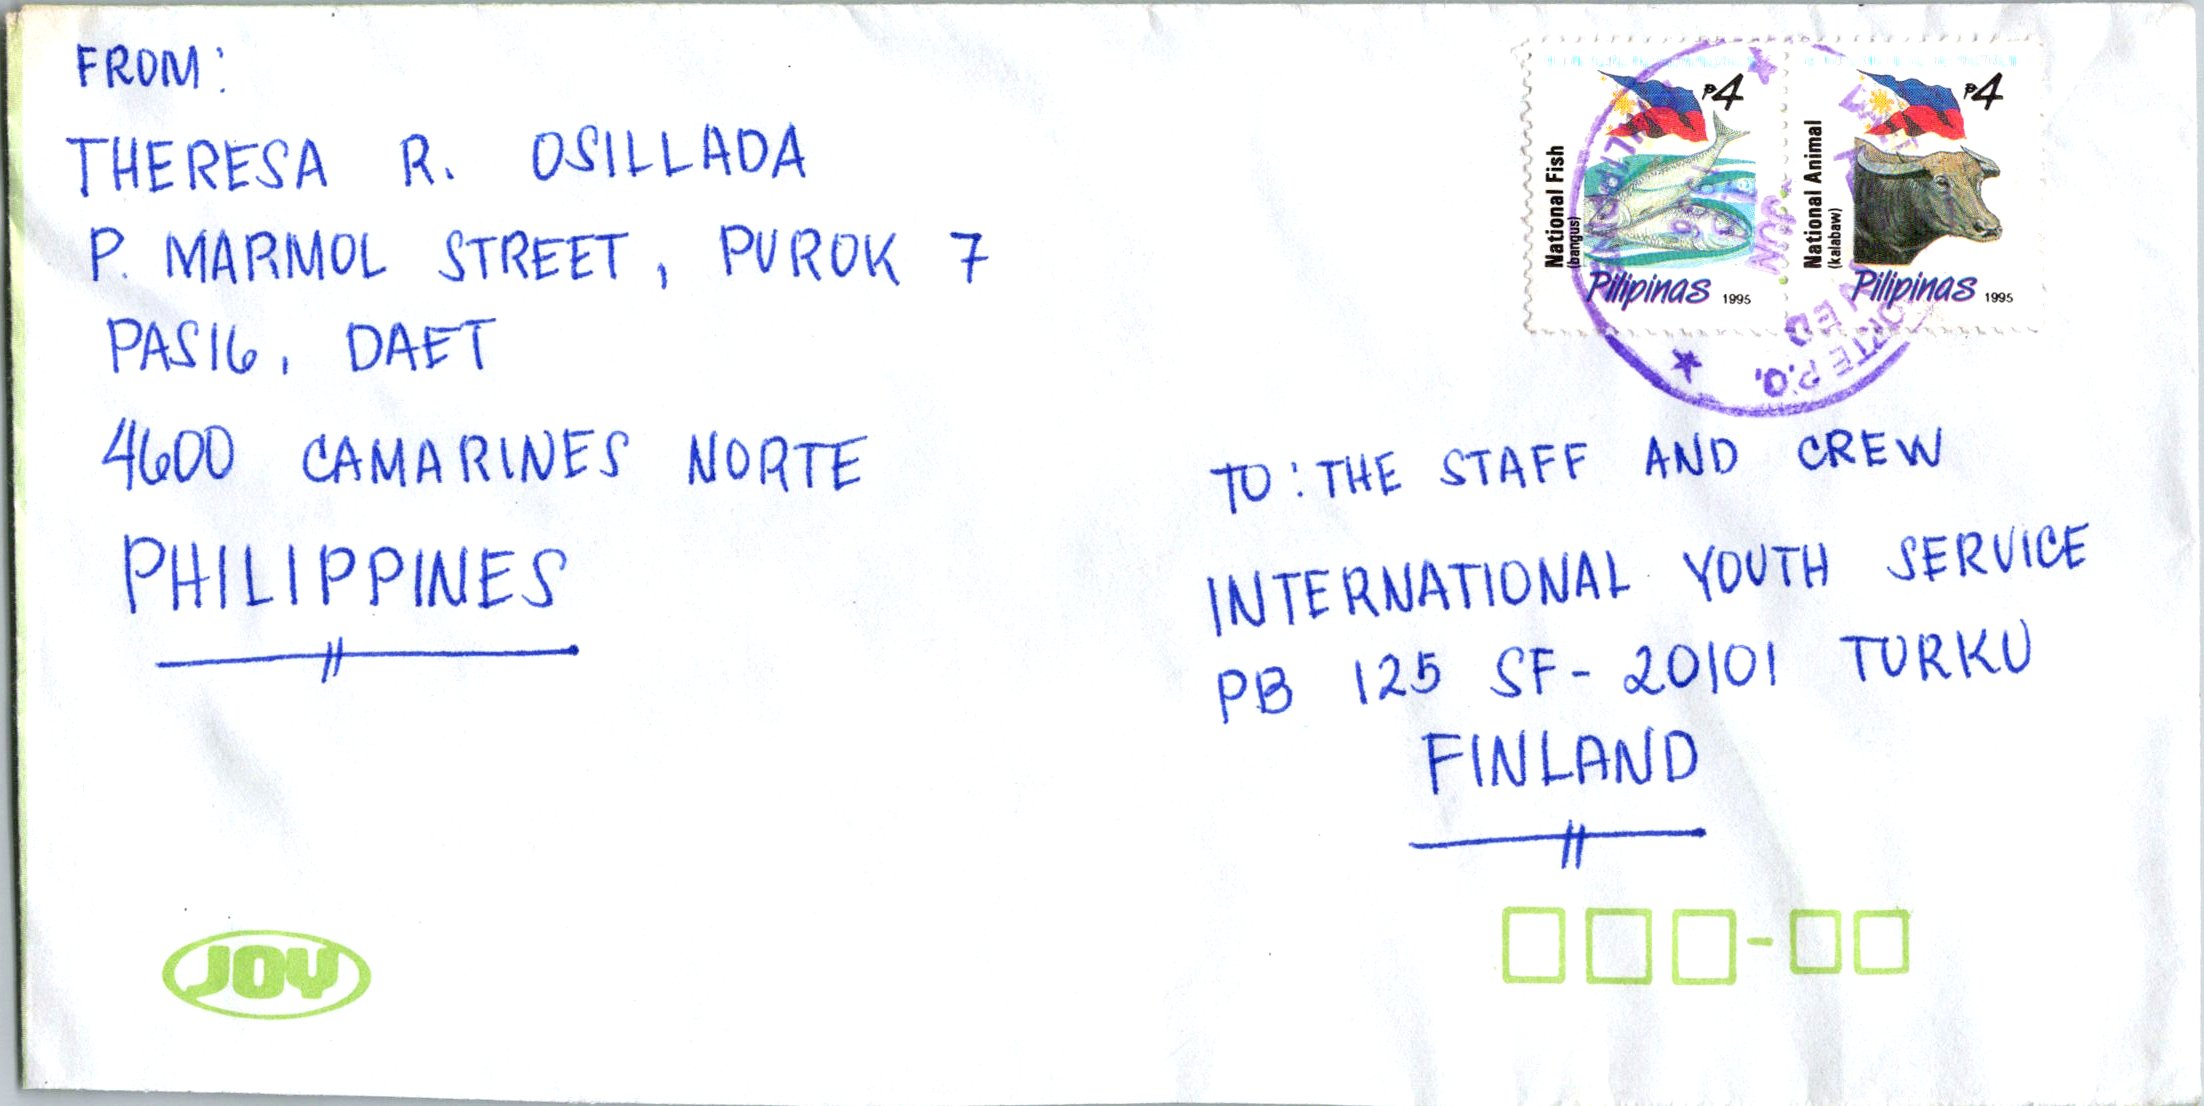 FROM:
THERESA R. OSILLADA
P. MARMOL STREET, PUROK 7
PASIG, DAET
4600 CAMARINES NORTE
PHILIPPINES
₱4
National Fish
(bangus)
Pilipinas 1995
₱4
National Animal
(kalabaw)
Pilipinas 1995
JUN
1996
P.O.
TO: THE STAFF AND CREW
INTERNATIONAL YOUTH SERVICE
PB 125 SF-20101 TURKU
FINLAND
JOY